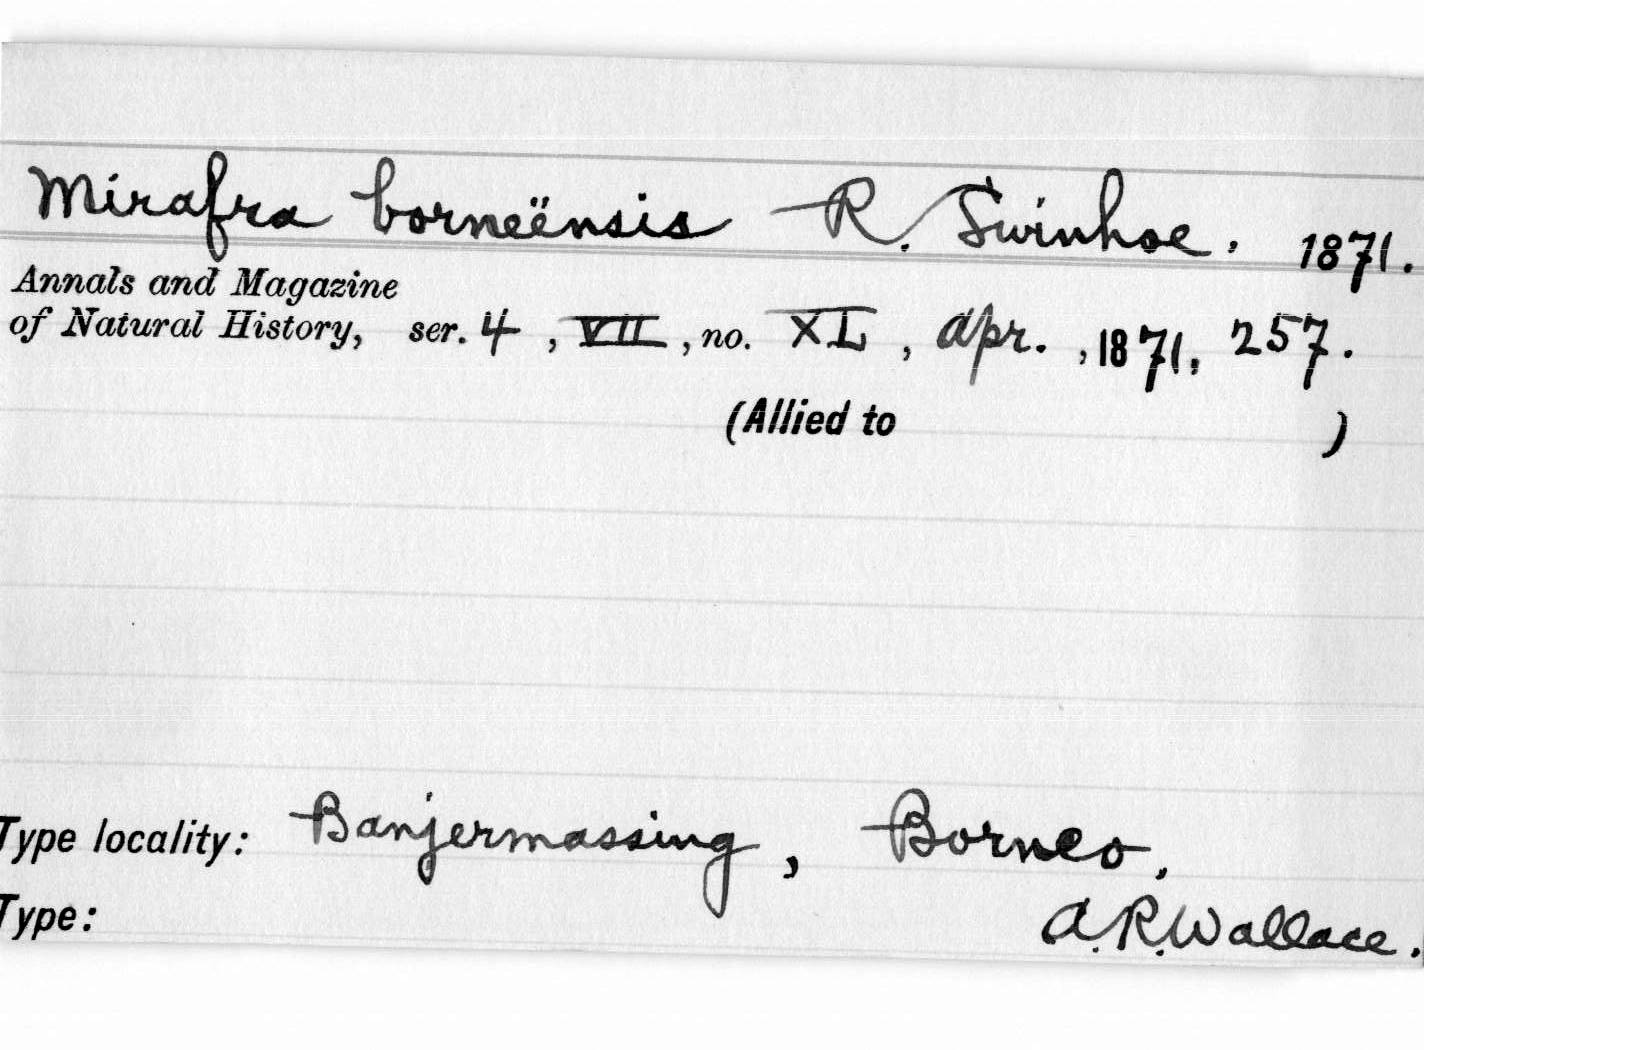 Mirafra borneënsis R. Swinhoe, 1871.
Annals and Magazine
of Natural History, ser. 4, VII, no. XL, Apr., 1871, 257.
(Allied to )
Type locality: Banjermassing, Borneo,
Type: A.R. Wallace.